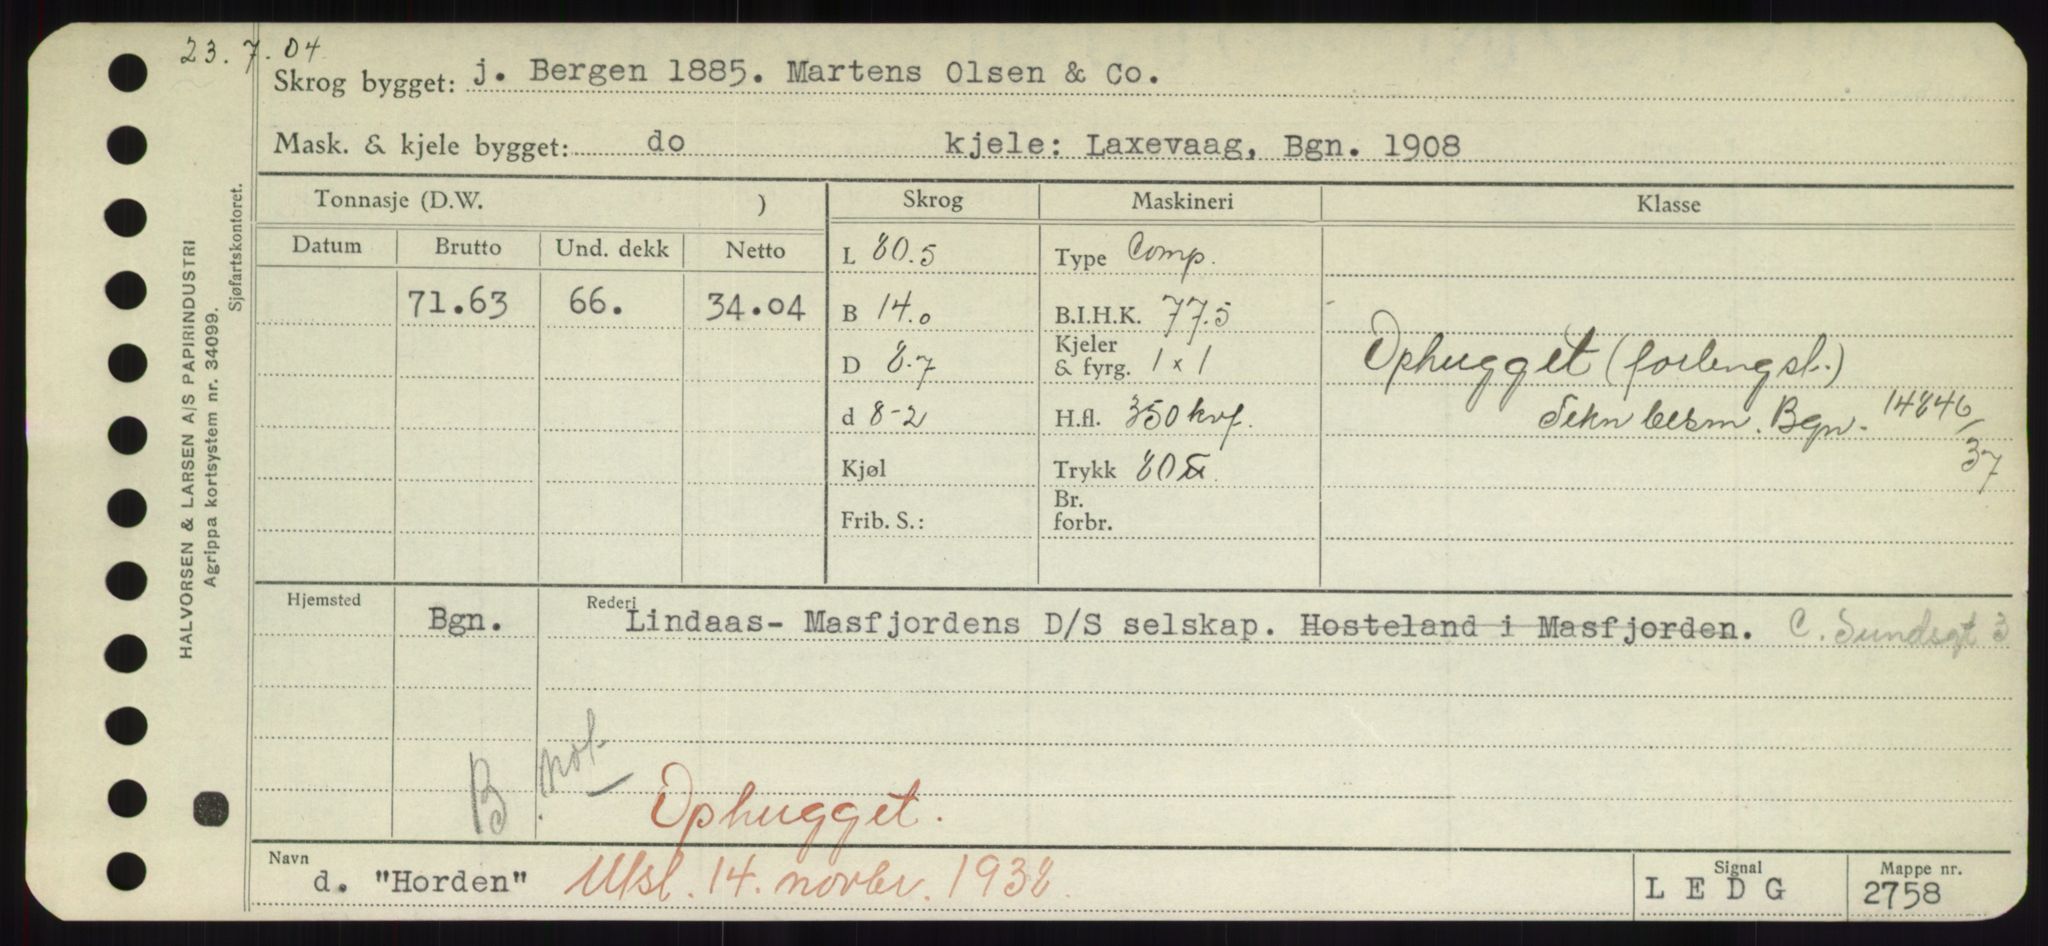 23.7.04
Skrog bygget: j. Bergen 1885. Martens Olsen & Co.
Mask. & kjele bygget: do kjele: Laxevaag, Bgn. 1908
Tonnasje (D.W. ) Skrog Maskineri Klasse
Datum Brutto Und. dekk Netto
L 80.5 Type Comp.
71.63 66. 34.04 B 14.0 B.I.H.K. 77.5
D 8.7 Kjeler & fyrg. 1 x 1 Ophugget (forlengst.)
d 8-2 H.fl. 350 kvf. Bgn. 14846/37
Kjøl Trykk 80
Frib. S.: Br. forbr.
Hjemsted Bgn. Rederi Lindaas- Masfjordens D/S selskap. Hosteland i Masfjorden. C. Sundsgt 3
B. not.
Ophugget.
Navn d. "Horden" Utsl. 14. novbr. 1938
Signal L E D G
Mappe nr. 2758
HALVORSEN & LARSEN A/S PAPIRINDUSTRI
Agrippa kortsystem nr. 34099.
Sjøfartskontoret.